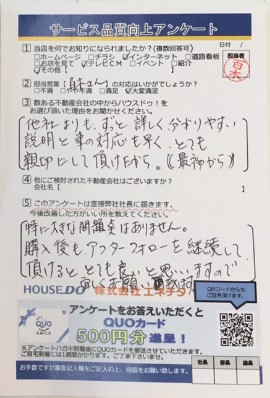 サービス品質向上アンケート
日付 /
① 当店を何でお知りになられましたか?(複数回答可)
□ホームページ □チラシ ☑インターネット □道路看板
□お店を見て □テレビCM □イベント □紹介
☑その他
担当者
② 担当営業 の対応はいかがでしょうか?
□不満 □満足 ☑大変満足
③ 数ある不動産会社の中からハウスドゥ!を
お選び頂いた理由をお聞かせください。
他社よりも、ずっと詳しく分かりやすい
説明と車の対応も早く、とても
親切にして頂けたから。(最初から)
④ 他にご検討された不動産会社はございますか?
会社名(
⑤ このアンケートは直接弊社社長に届きます。
今後改善した方がいい所を教えてください。
時に大きな問題点はありません。
購入後も、アフターフォローを継続して
頂けると、とても良いと思いますので
宜しくお願い致します
HOUSEDO 株式会社エネチタ
QRコードからも
ご回答頂けます。
アンケートをお答えいただくと
QUOカード
500円分 進呈!
QUO
※アンケートハガキ到着後にQUOカードを郵送させていただきます。
ご自宅到着には1週間かかります。ご了承下さいませ。
お手数ですが個人情報欄をご記入の上、投函をお願い致します。
社長 部長 店長